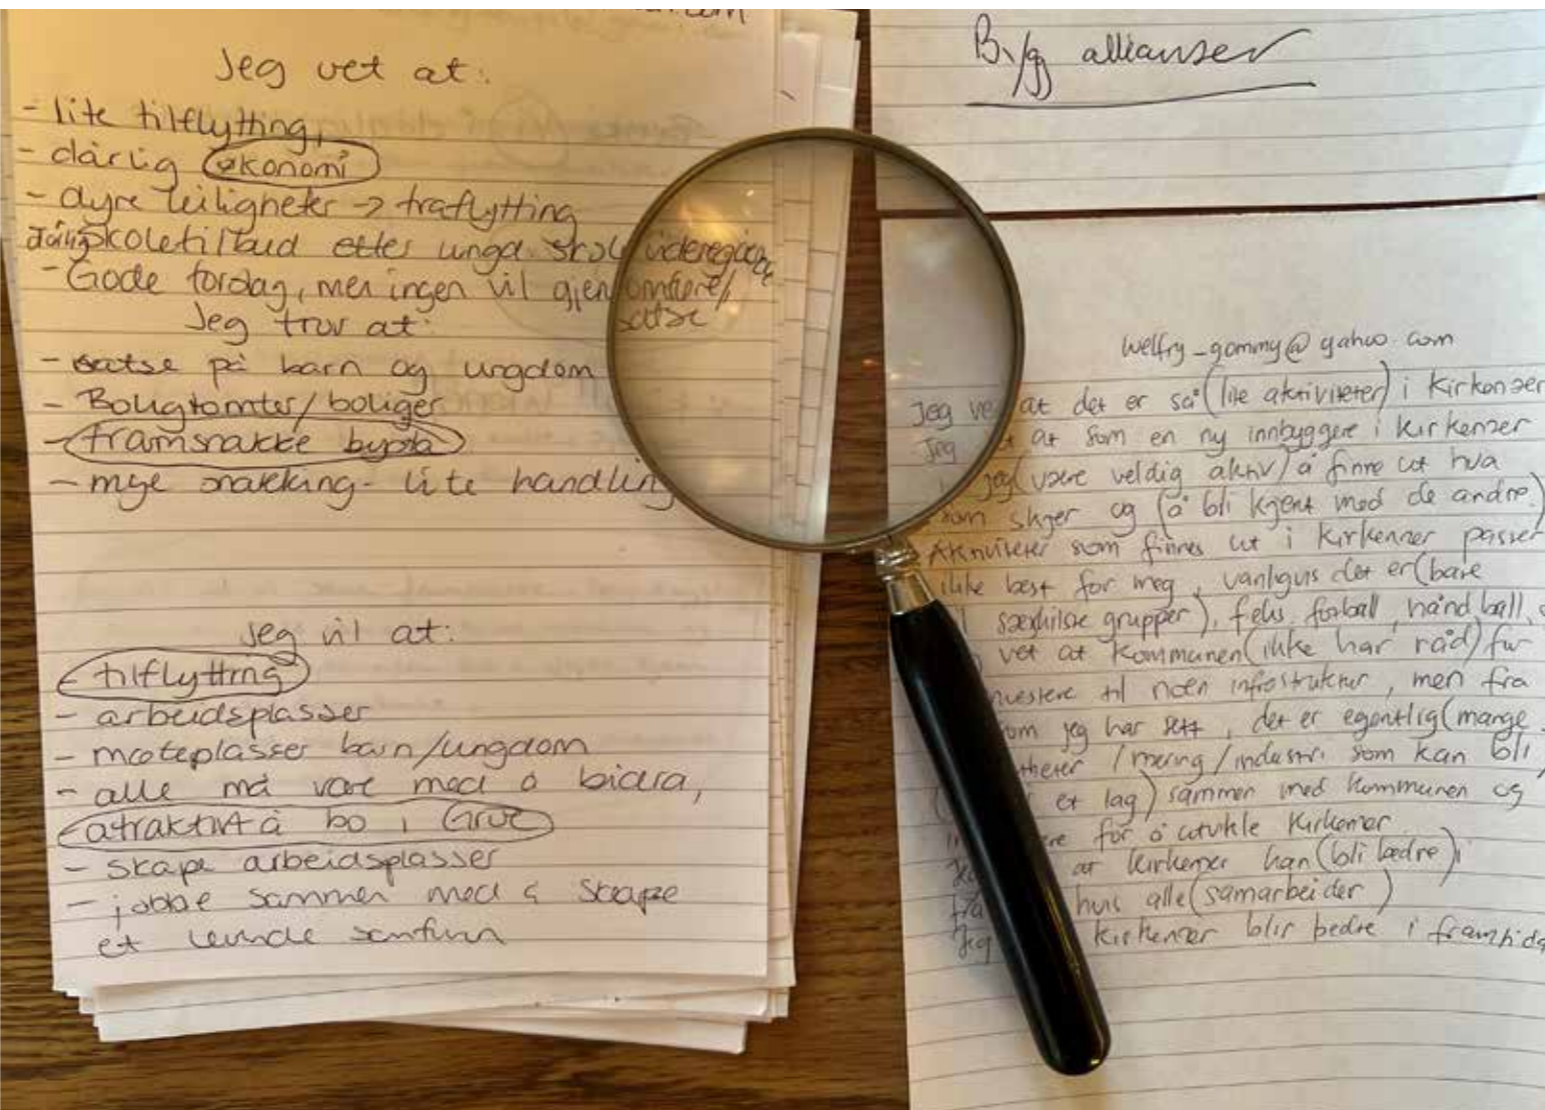 Jeg vet at:
- lite tilflytting,
- dårlig økonomi
- dyre leiligheter -> fraflytting
Dårlig skoletilbud etter ungd. skole videregåede
- Gode forslag, men ingen vil gjenomføre/
satse
Jeg tror at:
- satse på barn og ungdom
- Boligtomter/boliger
- framsnakke bygda
- mye snakking - lite handling
Jeg vil at:
- tilflytting
- arbeidsplasser
- møteplasser barn/ungdom
- alle må være med å bidra,
- atraktivt å bo i Grue
- skape arbeidsplasser
- jobbe sammen med å skape
et levende samfunn
Bygg allianser
welfry_gommy@yahoo.com
Jeg vet at det er så (lite aktiviteter) i Kirkenær
Jeg at som en ny innbyggere i Kirkenær
jeg (være veldig aktiv) å finne ut hva
som skjer og (å bli kjent med de andre.)
Aktiviteter som finnes ut i Kirkenær passer
ikke best for meg, vanligvis det er (bare
særskilte grupper), feks. fotball, håndball,
vet at kommunen (ikke har råd) for
investere til noen infrastruktur, men fra
som jeg har sett, det er egentlig (mange
/ næring / industri som kan bli
i et lag) sammen med kommunen og
for å utvikle Kirkenær.
at Kirkenær kan (bli bedre) i
hvis alle (samarbeider)
Jeg Kirkenær blir bedre i framtida